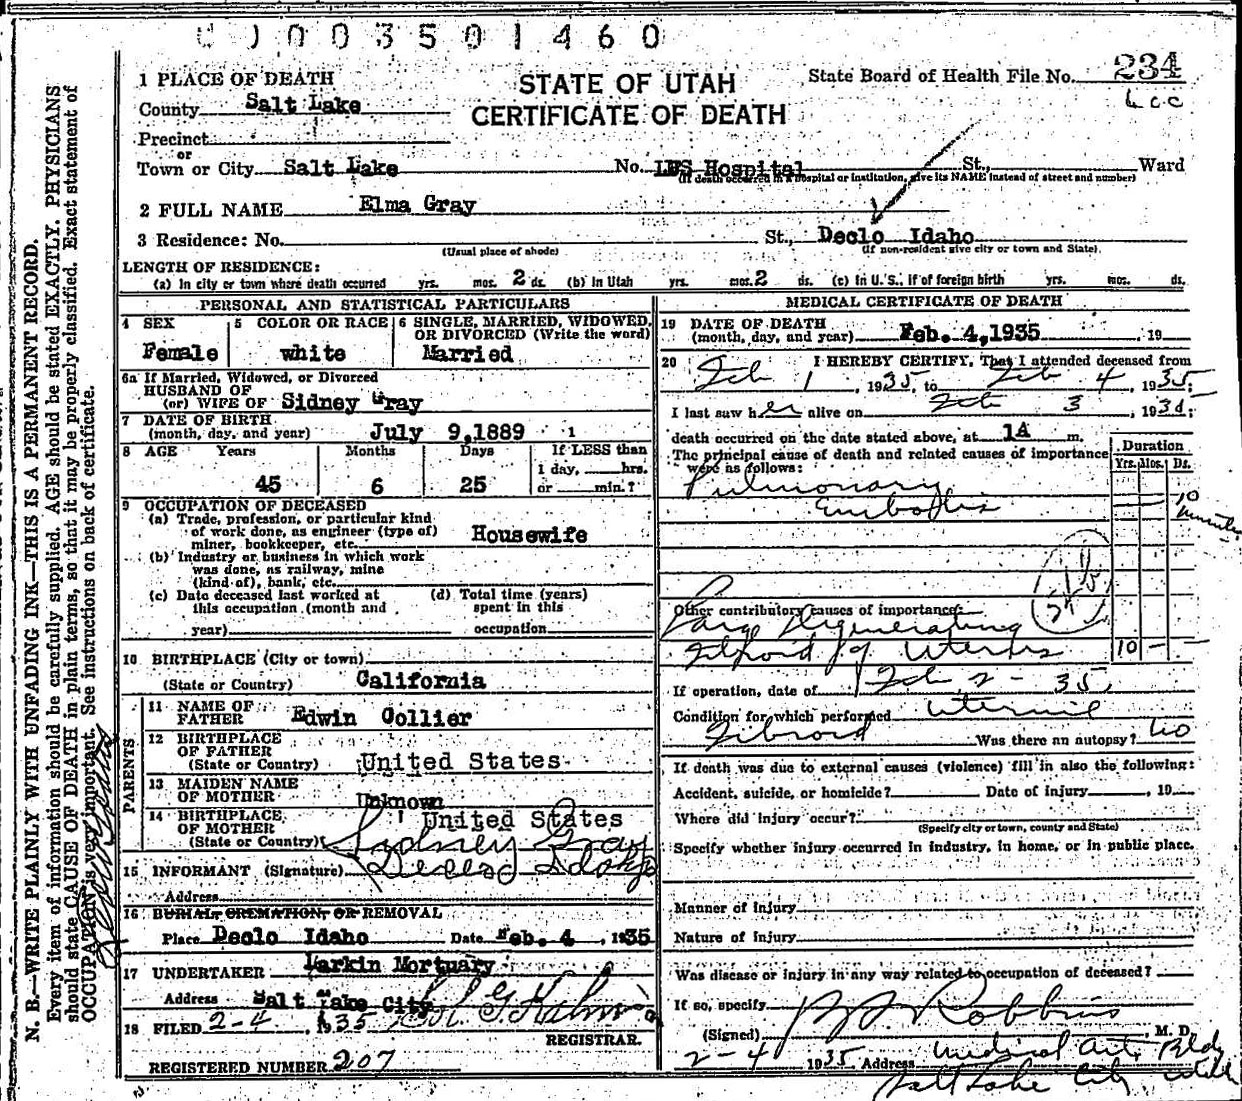 0 0 0 3 5 0 1 4 6 0
1 PLACE OF DEATH
STATE OF UTAH
CERTIFICATE OF DEATH
State Board of Health File No. 234
County Salt Lake
Precinct
or
Town or City Salt Lake No. LDS Hospital St., Ward
(If death occurred in a hospital or institution, give its NAME instead of street and number)
2 FULL NAME Elma Gray
3 Residence: No. St., Declo Idaho
(Usual place of abode) (If non-resident give city or town and State)
LENGTH OF RESIDENCE:
(a) In city or town where death occurred yrs. mos. 2 ds. (b) In Utah yrs. mos. 2 ds. (c) In U. S., if of foreign birth yrs. mos. ds.
PERSONAL AND STATISTICAL PARTICULARS
4 SEX
Female
5 COLOR OR RACE
white
6 SINGLE, MARRIED, WIDOWED,
OR DIVORCED (Write the word)
Married
6a If Married, Widowed, or Divorced
HUSBAND OF
(or) WIFE OF Sidney Gray
7 DATE OF BIRTH
(month, day, and year) July 9,1889
8 AGE Years Months Days If LESS than
1 day, hrs.
45 6 25 or min.?
9 OCCUPATION OF DECEASED
(a) Trade, profession, or particular kind
of work done, as engineer (type of)
miner, bookkeeper, etc. Housewife
(b) Industry or business in which work
was done, as railway, mine
(kind of), bank, etc.
(c) Date deceased last worked at (d) Total time (years)
this occupation (month and spent in this
year) occupation
10 BIRTHPLACE (City or town)
(State or Country) California
PARENTS
11 NAME OF
FATHER Edwin Collier
12 BIRTHPLACE
OF FATHER
(State or Country) United States
13 MAIDEN NAME
OF MOTHER Unknown
14 BIRTHPLACE
OF MOTHER United States
(State or Country)
Sidney Gray
15 INFORMANT (Signature) Declo Idaho
Address
16 BURIAL, CREMATION, OR REMOVAL
Place Declo Idaho Date Feb. 4, 1935
17 UNDERTAKER Larkin Mortuary
Address Salt Lake City
18 FILED 2-4, 1935
REGISTRAR.
REGISTERED NUMBER 207
MEDICAL CERTIFICATE OF DEATH
19 DATE OF DEATH
(month, day, and year) Feb. 4,1935, 19
20 I HEREBY CERTIFY, That I attended deceased from
Feb 1, 1935, to Feb 4, 1935;
I last saw her alive on Feb 3, 1935;
death occurred on the date stated above, at 1A m.
The principal cause of death and related causes of importance
were as follows:
Duration
Yrs. Mos. Ds.
Pulmonary
Embolis
10
minutes
Other contributory causes of importance:
Large Degenerating
Fibroid of Uterus 10 -
If operation, date of Feb 2 - 35
Condition for which performed Uterine
Fibroid Was there an autopsy? no
If death was due to external causes (violence) fill in also the following:
Accident, suicide, or homicide? Date of injury, 19
Where did injury occur?
(Specify city or town, county and State)
Specify whether injury occurred in industry, in home, or in public place.
Manner of injury
Nature of injury
Was disease or injury in any way related to occupation of deceased?
If so, specify
(Signed) Robbins, M. D.
2-4 1935 Address Medical Arts Bldg
Salt Lake City Utah
N. B.—WRITE PLAINLY WITH UNFADING INK—THIS IS A PERMANENT RECORD.
Every item of information should be carefully supplied. AGE should be stated EXACTLY. PHYSICIANS
should state CAUSE OF DEATH in plain terms, so that it may be properly classified. Exact statement of
OCCUPATION is very important. See instructions on back of certificate.